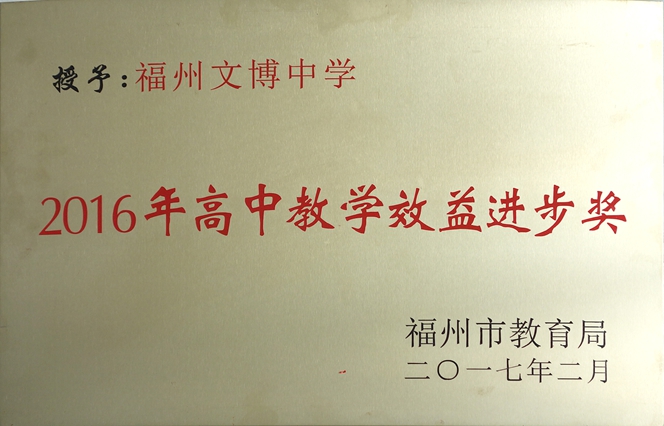 授予:福州文博中学
2016年高中教学效益进步奖
福州市教育局
二〇一七年二月